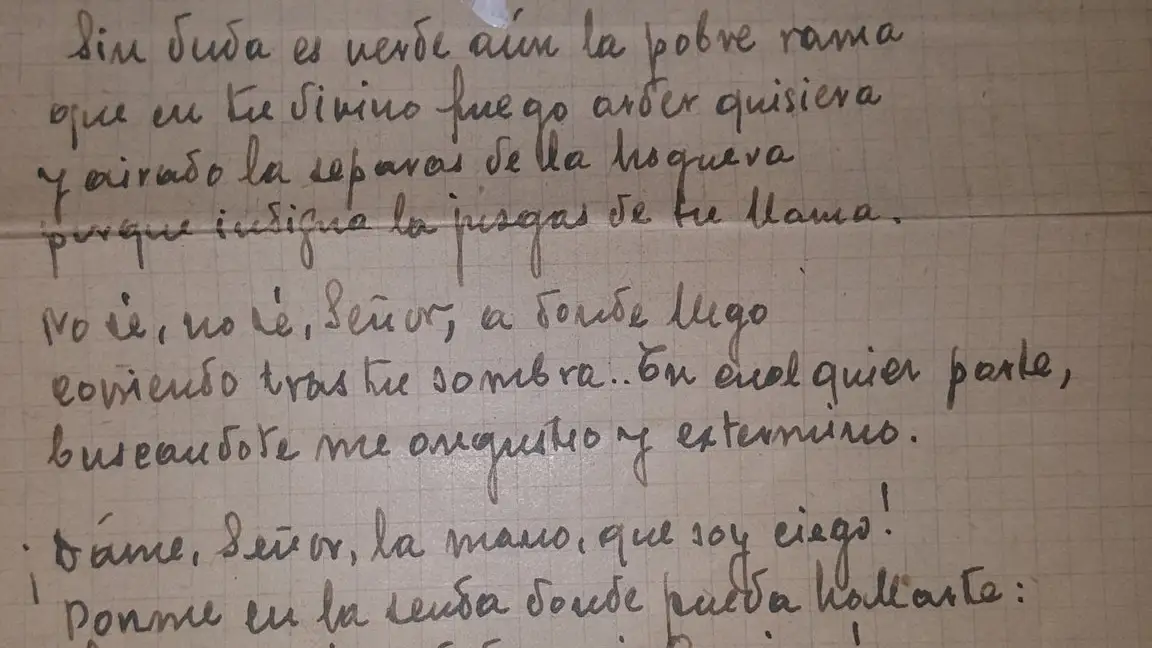 Sin duda es verde aún la pobre rama
que en tu divino fuego arder quisiera
y airado la separas de la hoguera
porque indigna la juzgas de tu llama.
No sé, no sé, Señor, a donde llego
corriendo tras tu sombra.. En cualquier parte,
buscandote me angustio y extermino.
¡Dáme, Señor, la mano, que soy ciego!
Ponme en la senda donde pueda hallarte: